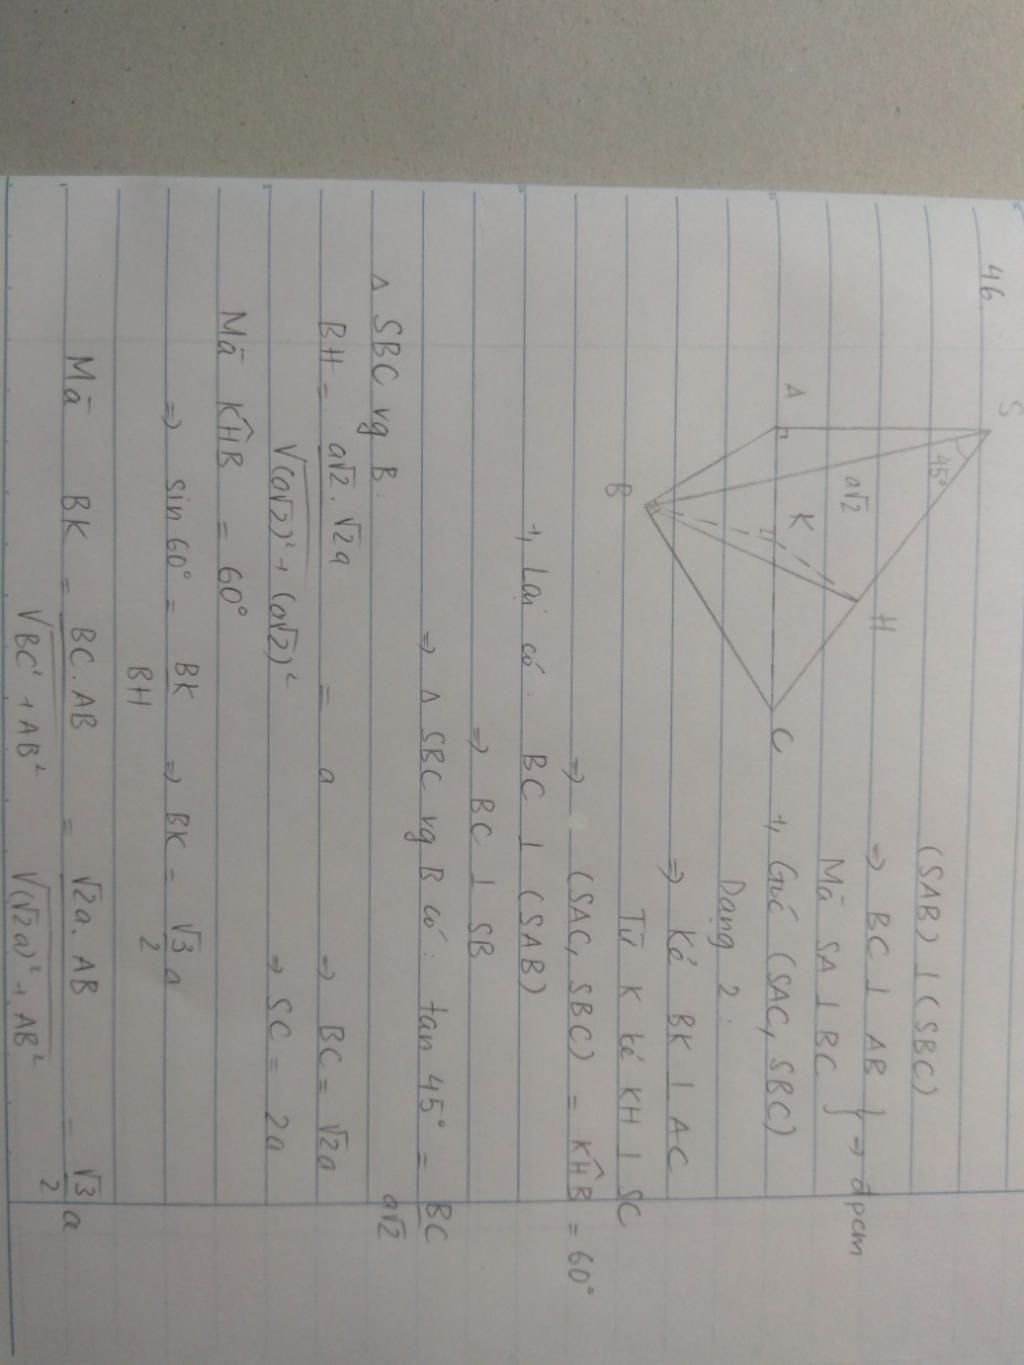 46.
S
45°
a√2
H
A
K
B
C
(SAB) ⊥ (SBC)
⇒ BC ⊥ AB } ⇒ đpcm
Mà SA ⊥ BC
+, Góc (SAC, SBC)
Dạng 2:
⇒ Kẻ BK ⊥ AC
Từ K kẻ KH ⊥ SC
⇒ (SAC, SBC) = KĤB = 60°
+, Lại có: BC ⊥ (SAB)
⇒ BC ⊥ SB
⇒ Δ SBC vg B có: tan 45° = BC / a√2
Δ SBC vg B: ⇒ BC = √2a
BH = a√2 . √2a / √(a√2)² + (a√2)² = a ⇒ SC = 2a
Mà KĤB = 60°
⇒ sin 60° = BK / BH ⇒ BK = √3 / 2 a
Mà BK = BC . AB / √BC² + AB² = √2a . AB / √(√2a)² + AB² = √3 / 2 a